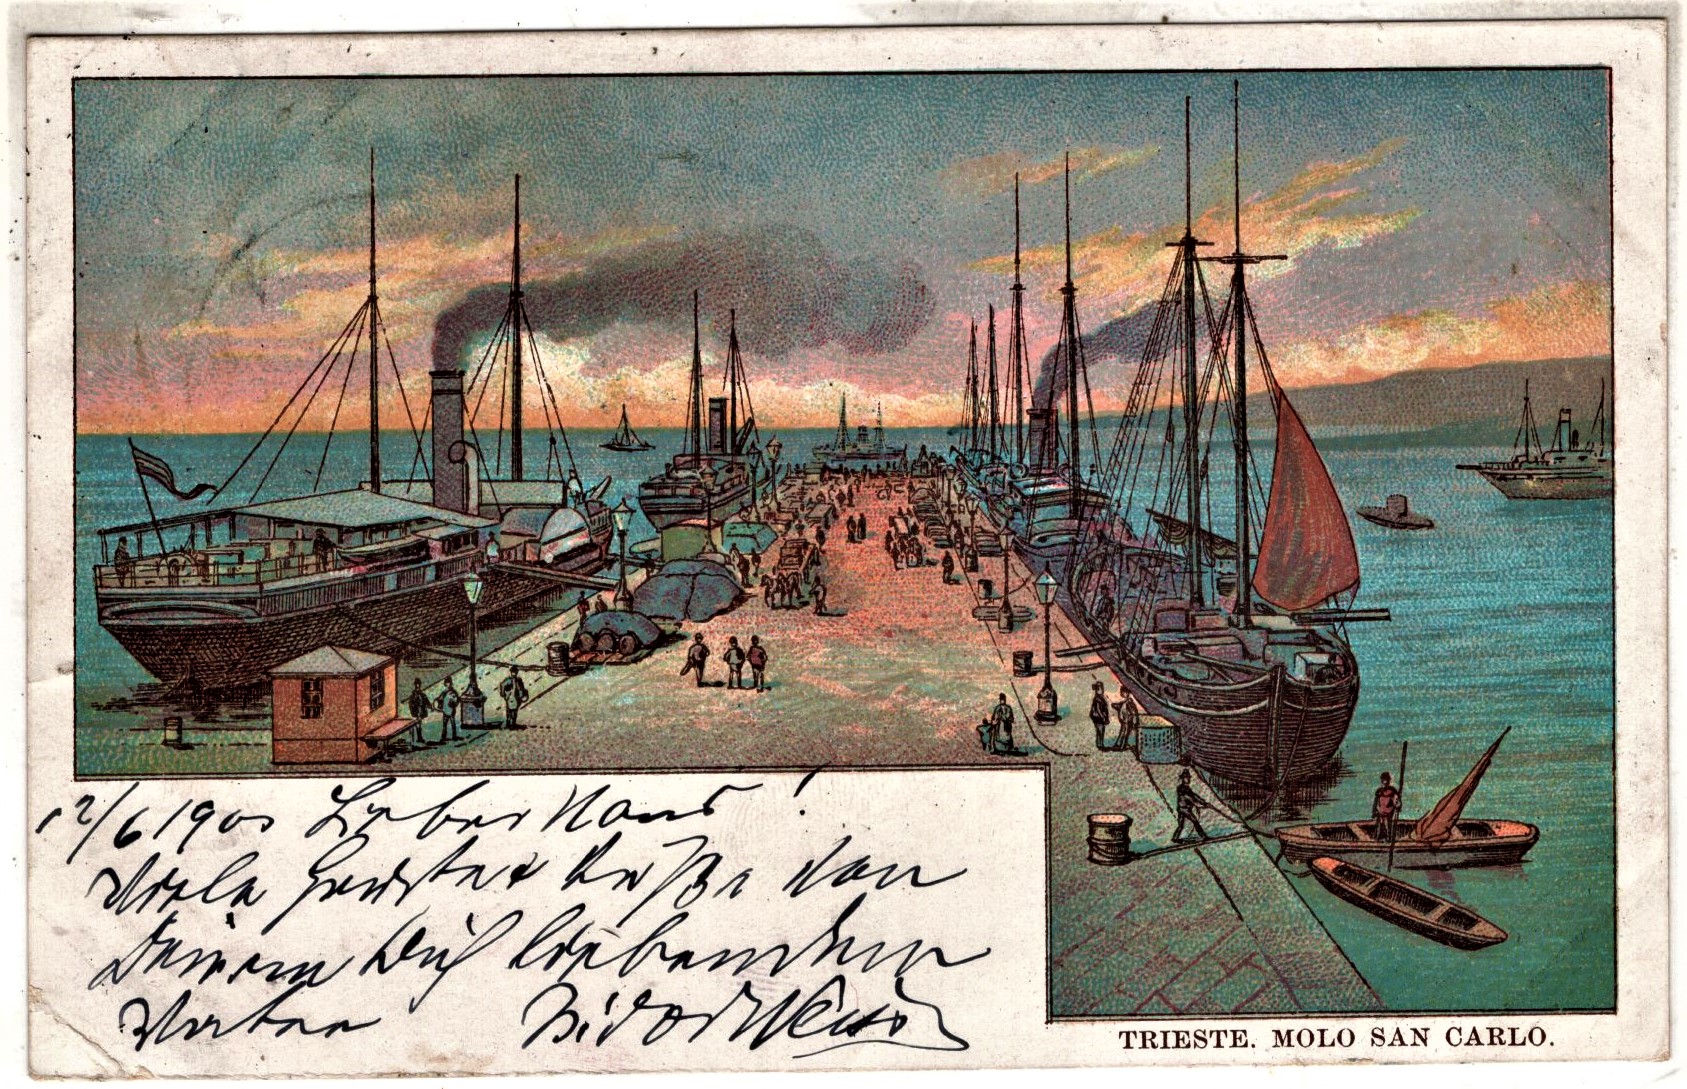 12/6 1900 Lieber Hans!
Viele Grüße & Küße von
Deinem Dich liebenden
Vater
TRIESTE. MOLO SAN CARLO.